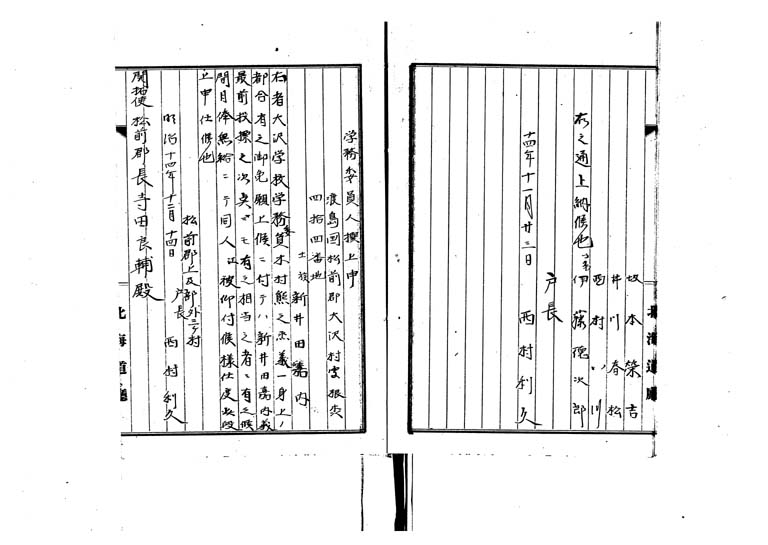 坂本築吉
井川春松
西村　川
伊藤徳次郎
右之通上納候也
十四年十一月廿三日
戸長
西村利久
北海道廳
学務委員人撰上申
渡島国松前郡大沢村字根森
四拾四番地
士族 新井田嘉内
右者大沢学校学務委員木村熊之丞義一身上ノ
都合有之御免願上候ニ付テハ新井田嘉内義
最前投票之次点ニモ有之相当之者ニ有之候
間月俸無給ニテ同人江被仰付候様仕度此段
上申仕候也
松前郡上及部外三ヶ村
戸長
西村利久
明治十四年十二月十四日
開拓使松前郡長寺田良輔殿
北海道廳